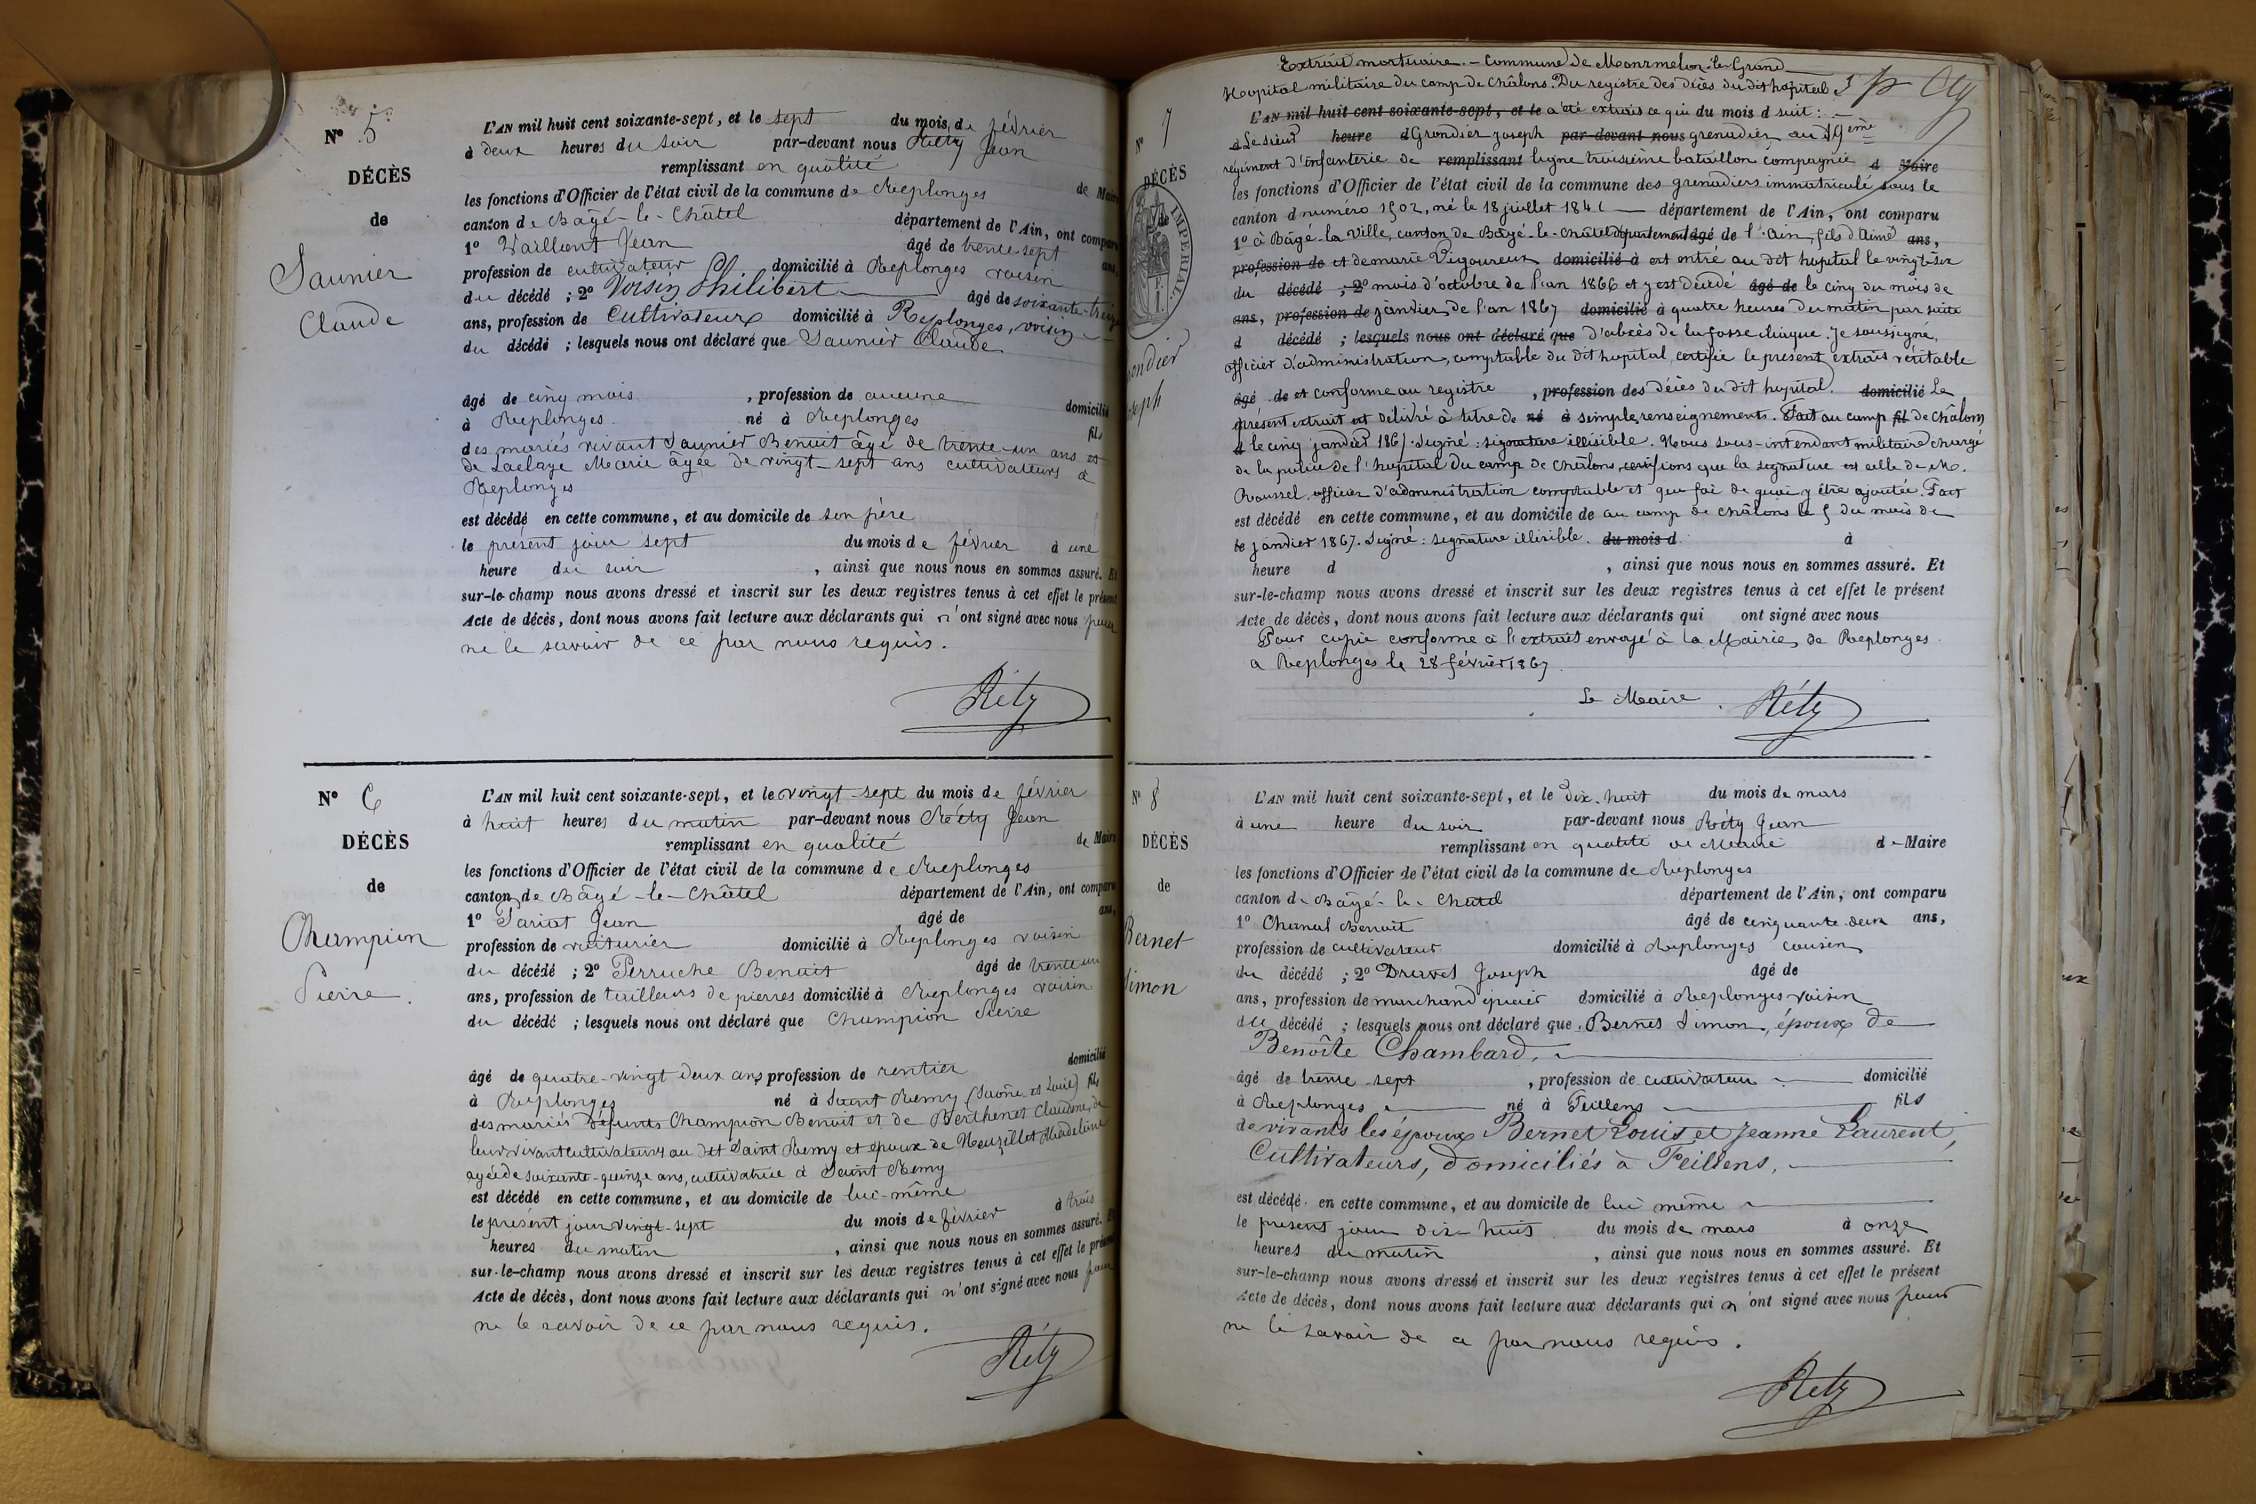 N° 5
DÉCÈS
de
Saunier
Claude
L'AN mil huit cent soixante-sept, et le sept du mois de février
à deux heures du soir par-devant nous Réty Jean
remplissant en qualité de Maire
les fonctions d'Officier de l'état civil de la commune de Replonges
canton de Bâgé-le-Châtel département de l'Ain, ont comparu
1° Vaillant Jean âgé de trente-sept ans,
profession de cultivateur domicilié à Replonges voisin
du décédé ; 2° Voisin Philibert âgé de soixante-treize
ans, profession de Cultivateur domicilié à Replonges, voisin
du décédé ; lesquels nous ont déclaré que Saunier Claude
âgé de cinq mois , profession de aucune domicilié
à Replonges né à Replonges fils
des mariés vivant Saunier Benoit âgé de trente-un ans et
de Laclaye Marie âgée de vingt-sept ans cultivateurs à
Replonges
est décédé en cette commune, et au domicile de son père
le présent jour sept du mois de février à une
heure du soir , ainsi que nous nous en sommes assuré. Et
sur-le-champ nous avons dressé et inscrit sur les deux registres tenus à cet effet le présent
Acte de décès, dont nous avons fait lecture aux déclarants qui n'ont signé avec nous pour
ne le savoir de ce par nous requis.
Réty
N° 6
DÉCÈS
de
Champion
Pierre.
L'AN mil huit cent soixante-sept, et le vingt-sept du mois de février
à huit heures du matin par-devant nous Réty Jean
remplissant en qualité de Maire
les fonctions d'Officier de l'état civil de la commune de Replonges
canton de Bâgé-le-Châtel département de l'Ain, ont comparu
1° Pariat Jean âgé de ans,
profession de voiturier domicilié à Replonges voisin
du décédé ; 2° Perruche Benoit âgé de trente un
ans, profession de tailleurs de pierres domicilié à Replonges voisin
du décédé ; lesquels nous ont déclaré que Champion Pierre
âgé de quatre-vingt deux ans profession de rentier domicilié
à Replonges né à Saint Remy (Saône et Loire) fils
des mariés défunts Champion Benoit et de Berthenet Claudine, de
leur vivant cultivateurs au dit Saint Remy et époux de Neuzillet Madeleine
agée de soixante-quinze ans, cultivatrice à Saint Remy
est décédé en cette commune, et au domicile de lui-même
le présent jour vingt-sept du mois de février à trois
heures du matin , ainsi que nous nous en sommes assuré. Et
sur-le-champ nous avons dressé et inscrit sur les deux registres tenus à cet effet le présent
Acte de décès, dont nous avons fait lecture aux déclarants qui n'ont signé avec nous pour
ne le savoir de ce par nous requis.
Réty
Extrait mortuaire. - Commune de Mourmelon-le-Grand
Hopital militaire du camp de Châlons. Du registre des décès du dit hopital
N° 7
DÉCÈS
de
IMPERIAL.
ondier
seph
L'AN mil huit cent soixante-sept, et le a été extrait ce qui du mois d suit :
à Le sieur heure d Grondier Joseph par-devant nous grenadier au 19ème
régiment d'infanterie de remplissant ligne troisième bataillon compagnie d Maire
les fonctions d'Officier de l'état civil de la commune des grenadiers immatriculé sous le
canton d numéro 1502, né le 18 juillet 1841 département de l'Ain, ont comparu
1° à Bâgé-la-Ville, canton de Bâgé-le-Châtel département âgé de l'Ain, fils d'Aimé ans,
profession de et de marie Vigoureux domicilié à est entré au dit hopital le vingt-six
du décédé ; 2° mois d'octobre de l'an 1866 et y est décédé âgé de le cinq du mois de
ans, profession de janvier de l'an 1867 domicilié à quatre heures du matin par suite
d décédé ; lesquels nous ont déclaré que D'abcès de la fosse iliaque. Je soussigné,
officier d'administration, comptable du dit hopital, certifie le présent extrait véritable
âgé de et conforme au registre , profession des décès du dit hopital. domicilié Le
présent extrait est délivré à titre de né à simple renseignement. Fait au camp fil de Châlons
d le cinq janvier 1867. Signé : signature illisible. Nous sous-intendant militaire chargé
de la police de l'hopital du camp de Châlons, certifions que la signature est celle de M.
Roussel, officier d'administration comptable et que foi de quoi y être ajoutée. Fait
est décédé en cette commune, et au domicile de au camp de Châlons le 5 du mois de
le janvier 1867. Signé : signature illisible. du mois d à
heure d , ainsi que nous nous en sommes assuré. Et
sur-le-champ nous avons dressé et inscrit sur les deux registres tenus à cet effet le présent
Acte de décès, dont nous avons fait lecture aux déclarants qui ont signé avec nous
Pour copie conforme à l'extrait envoyé à la Mairie de Replonges
à Replonges le 28 février 1867.
Le Maire. Réty
N° 8
DÉCÈS
de
Bernet
Simon
L'AN mil huit cent soixante-sept, et le dix-huit du mois de mars
à une heure du soir par-devant nous Réty Jean
remplissant en qualité de Maire de Maire
les fonctions d'Officier de l'état civil de la commune de Replonges
canton de Bâgé-le-Châtel département de l'Ain, ont comparu
1° Chanal Benoit âgé de cinquante-deux ans,
profession de cultivateur domicilié à Replonges cousin
du décédé ; 2° Druvet Joseph âgé de
ans, profession de marchand épicier domicilié à Replonges voisin
du décédé ; lesquels nous ont déclaré que Bernet Simon, époux de
Benoîte Chambard,
âgé de trente-sept , profession de cultivateur domicilié
à Replonges né à Feillens fils
de vivants les époux Bernet Louis et Jeanne Laurent,
Cultivateurs, domiciliés à Feillens,
est décédé en cette commune, et au domicile de lui même
le présent jour dix-huit du mois de mars à onze
heures du matin , ainsi que nous nous en sommes assuré. Et
sur-le-champ nous avons dressé et inscrit sur les deux registres tenus à cet effet le présent
Acte de décès, dont nous avons fait lecture aux déclarants qui n'ont signé avec nous pour
ne le savoir de ce par nous requis.
Réty